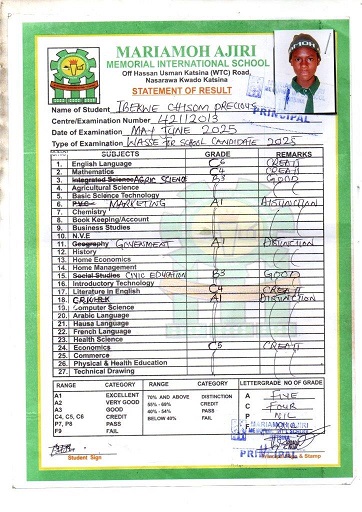 MARIAMOH AJIRI
MEMORIAL INTERNATIONAL SCHOOL
Off Hassan Usman Katsina (WTC) Road,
Nasarawa Kwado Katsina
STATEMENT OF RESULT
PRINCIPAL
Name of Student IBEKWE CHISOM PRECIOUS
Centre/Examination Number 42112013
Date of Examination MAY JUNE 2025
Type of Examination WASSE FOR SCHOOL CANDIDATE 2025
SUBJECTS GRADE REMARKS
1. English Language C6 CREDIT
2. Mathematics C4 CREDIT
3. Integrated Science AGRIC SCIENCE B3 GOOD
4. Agricultural Science
5. Basic Science Technology
6. P.V.C MARKETING A1 DISTINCTION
7. Chemistry
8. Book Keeping/Account
9. Business Studies
10. N.V.E
11. Geography GOVERNMENT A1 DISTINCTION
12. History
13. Home Economics
14. Home Management
15. Social Studies CIVIC EDUCATION B3 GOOD
16. Introductory Technology
17. Literature in English C4 CREDIT
18. C.R.K/I.R.K A1 DISTINCTION
19. Computer Science
20. Arabic Language
21. Hausa Language
22. French Language
23. Health Science
24. Economics C5 CREDIT
25. Commerce
26. Physical & Health Education
27. Technical Drawing
RANGE CATEGORY RANGE CATEGORY LETTERGRADE NO OF GRADE
A1 EXCELLENT 70% AND ABOVE DISTINCTION A FIVE
A2 VERY GOOD 55% - 69% CREDIT C FOUR
A3 GOOD 40% - 54% PASS P NIL
C4, C5, C6 CREDIT BELOW 40% FAIL F
P7, P8 PASS
F9 FAIL
MARIAMOH AJIRI
PRINCIPAL
Student Sign & Stamp